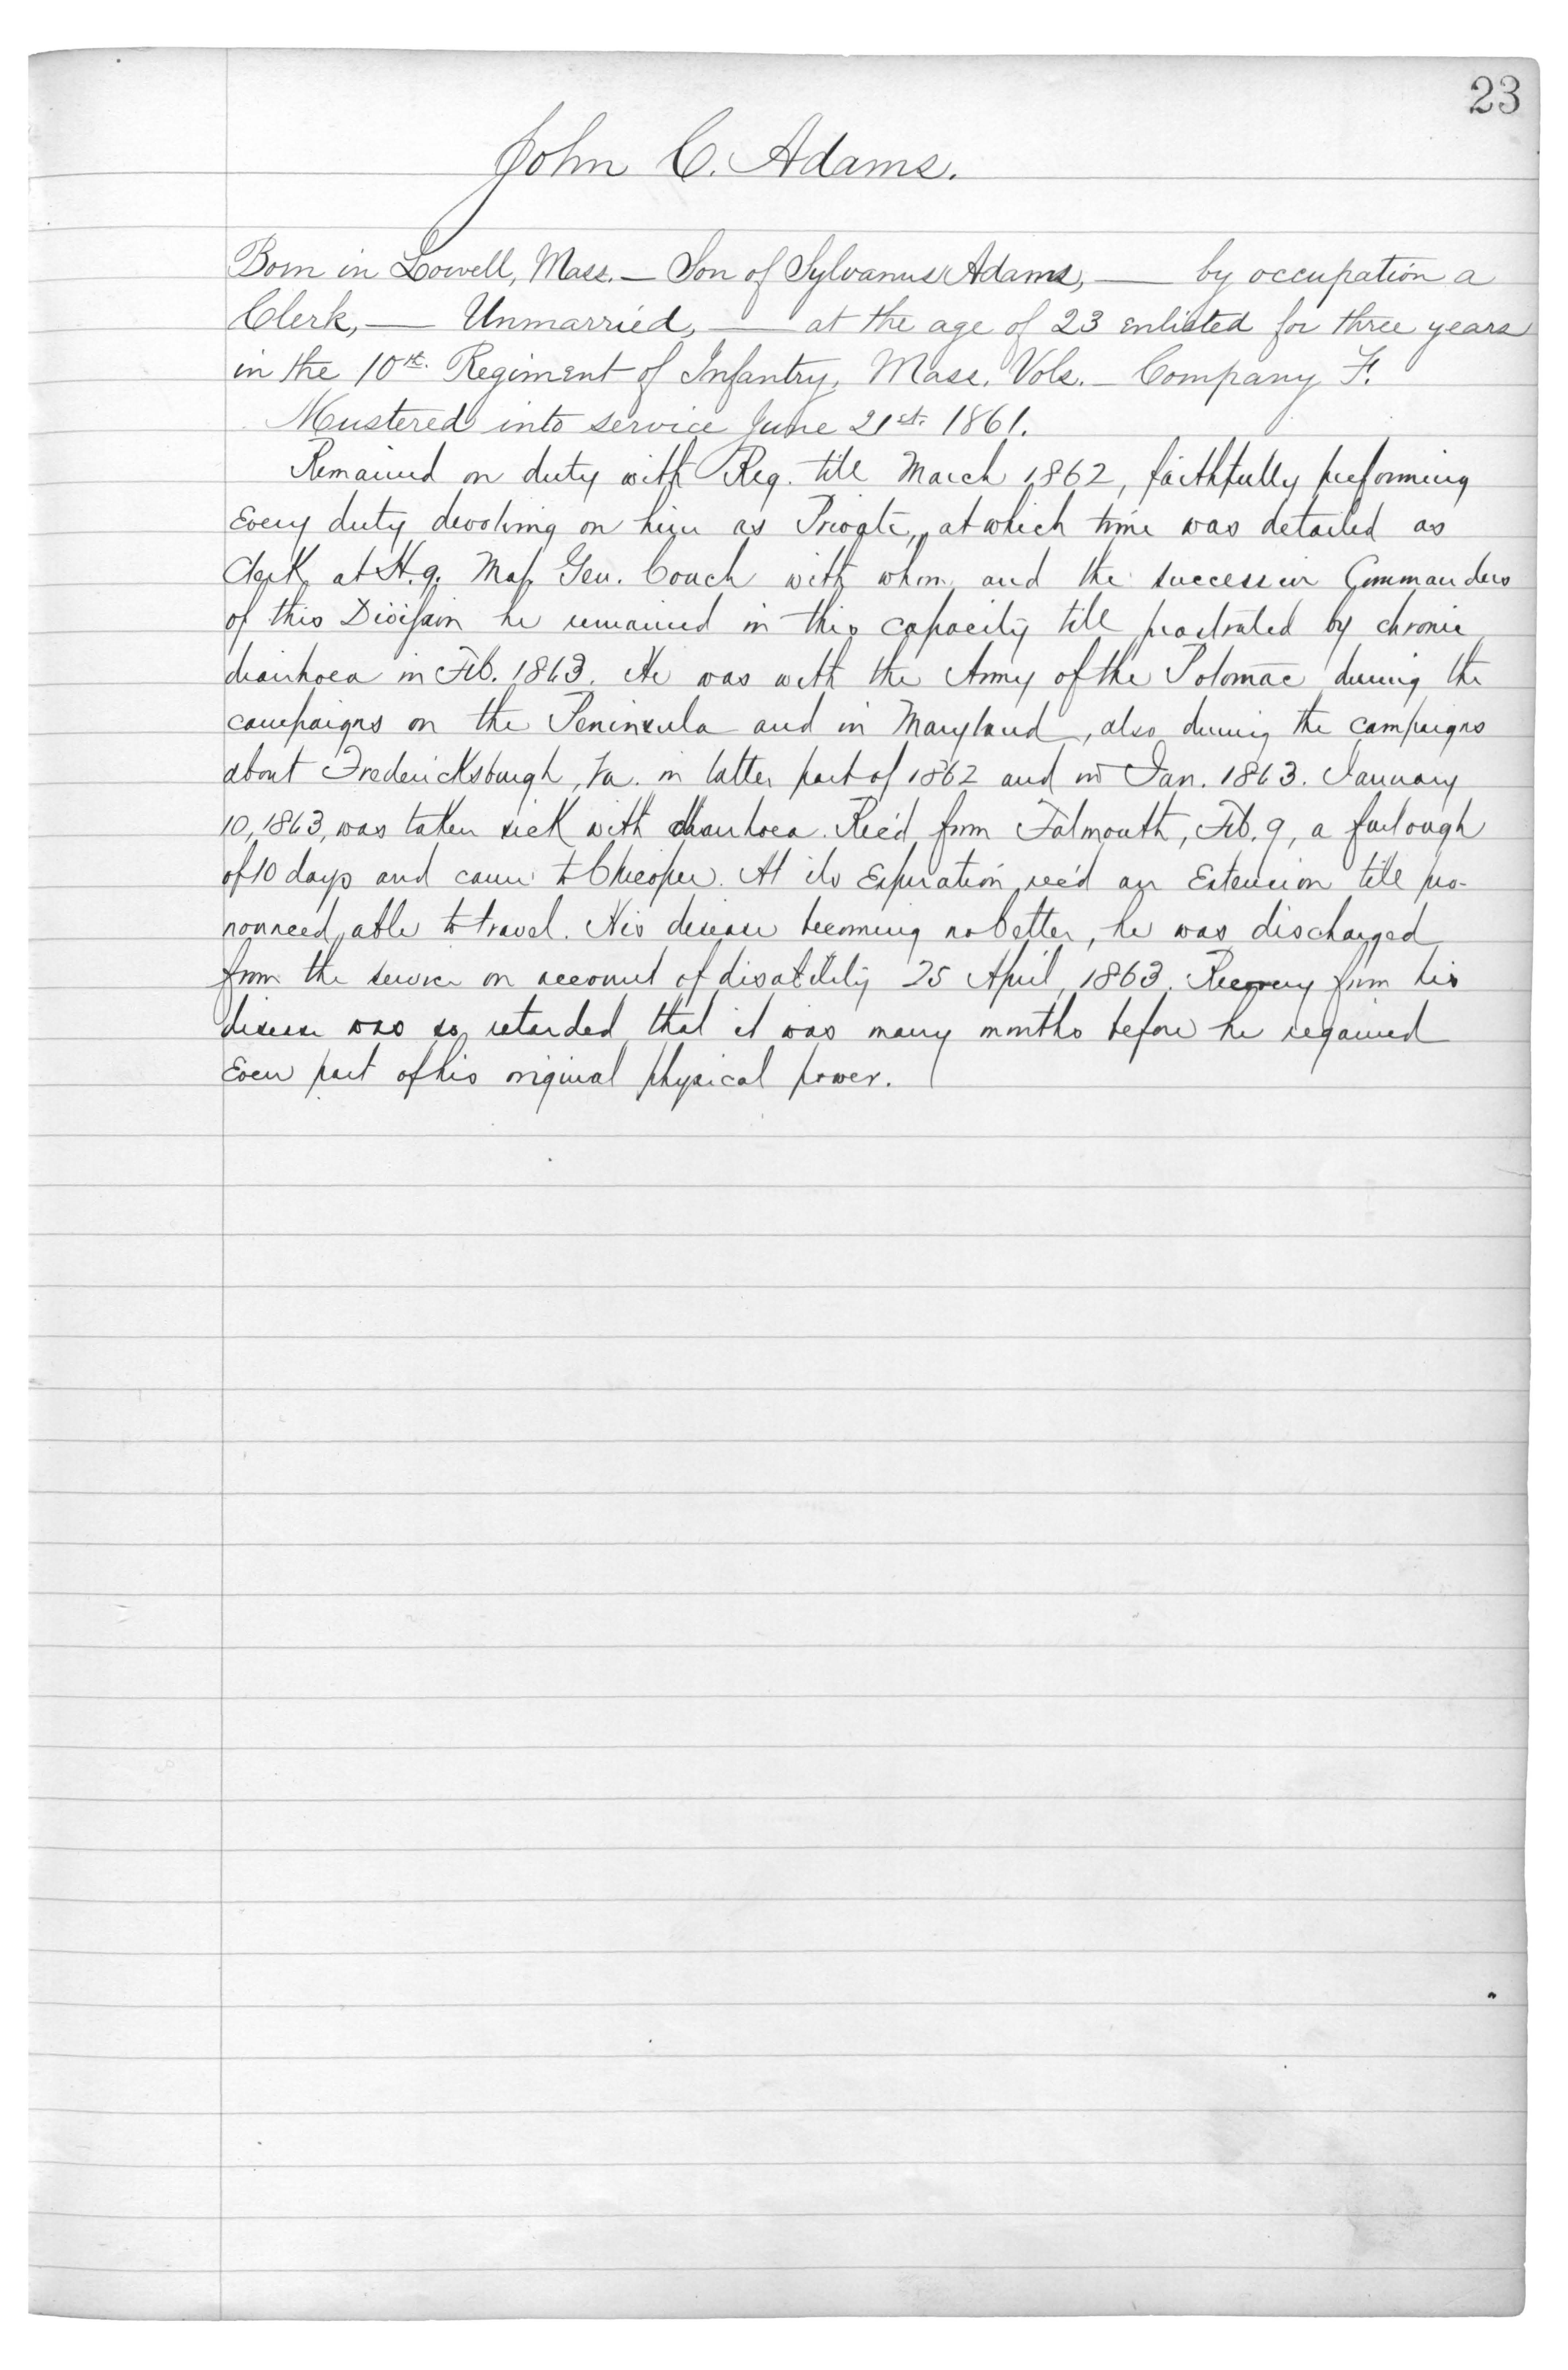 23
John C. Adams.
Born in Lowell, Mass. — Son of Sylvanus Adams, — by occupation a
Clerk, — Unmarried, — at the age of 23 enlisted for three years
in the 10th. Regiment of Infantry, Mass. Vols. — Company F.
Mustered into service June 21st. 1861.
Remained on duty with Reg. till March 1862, faithfully performing
every duty devolving on him as Private, at which time was detailed as
Clerk at H.q. Maj. Gen. Couch with whom and the successive Commanders
of this Division he remained in this capacity till prostrated by chronic
diarrhoea in Feb. 1863. He was with the Army of the Potomac during the
campaigns on the Peninsula and in Maryland, also during the campaigns
about Fredericksburgh, Va. in latter part of 1862 and in Jan. 1863. January
10, 1863, was taken sick with diarrhoea. Rec'd from Falmouth, Feb. 9, a furlough
of 10 days and came to Chicopee. At its expiration rec'd an extension till pro-
nounced able to travel. His disease becoming no better, he was discharged
from the service on account of disability 25 April, 1863. Recovery from his
disease was so retarded that it was many months before he regained
even part of his original physical power.